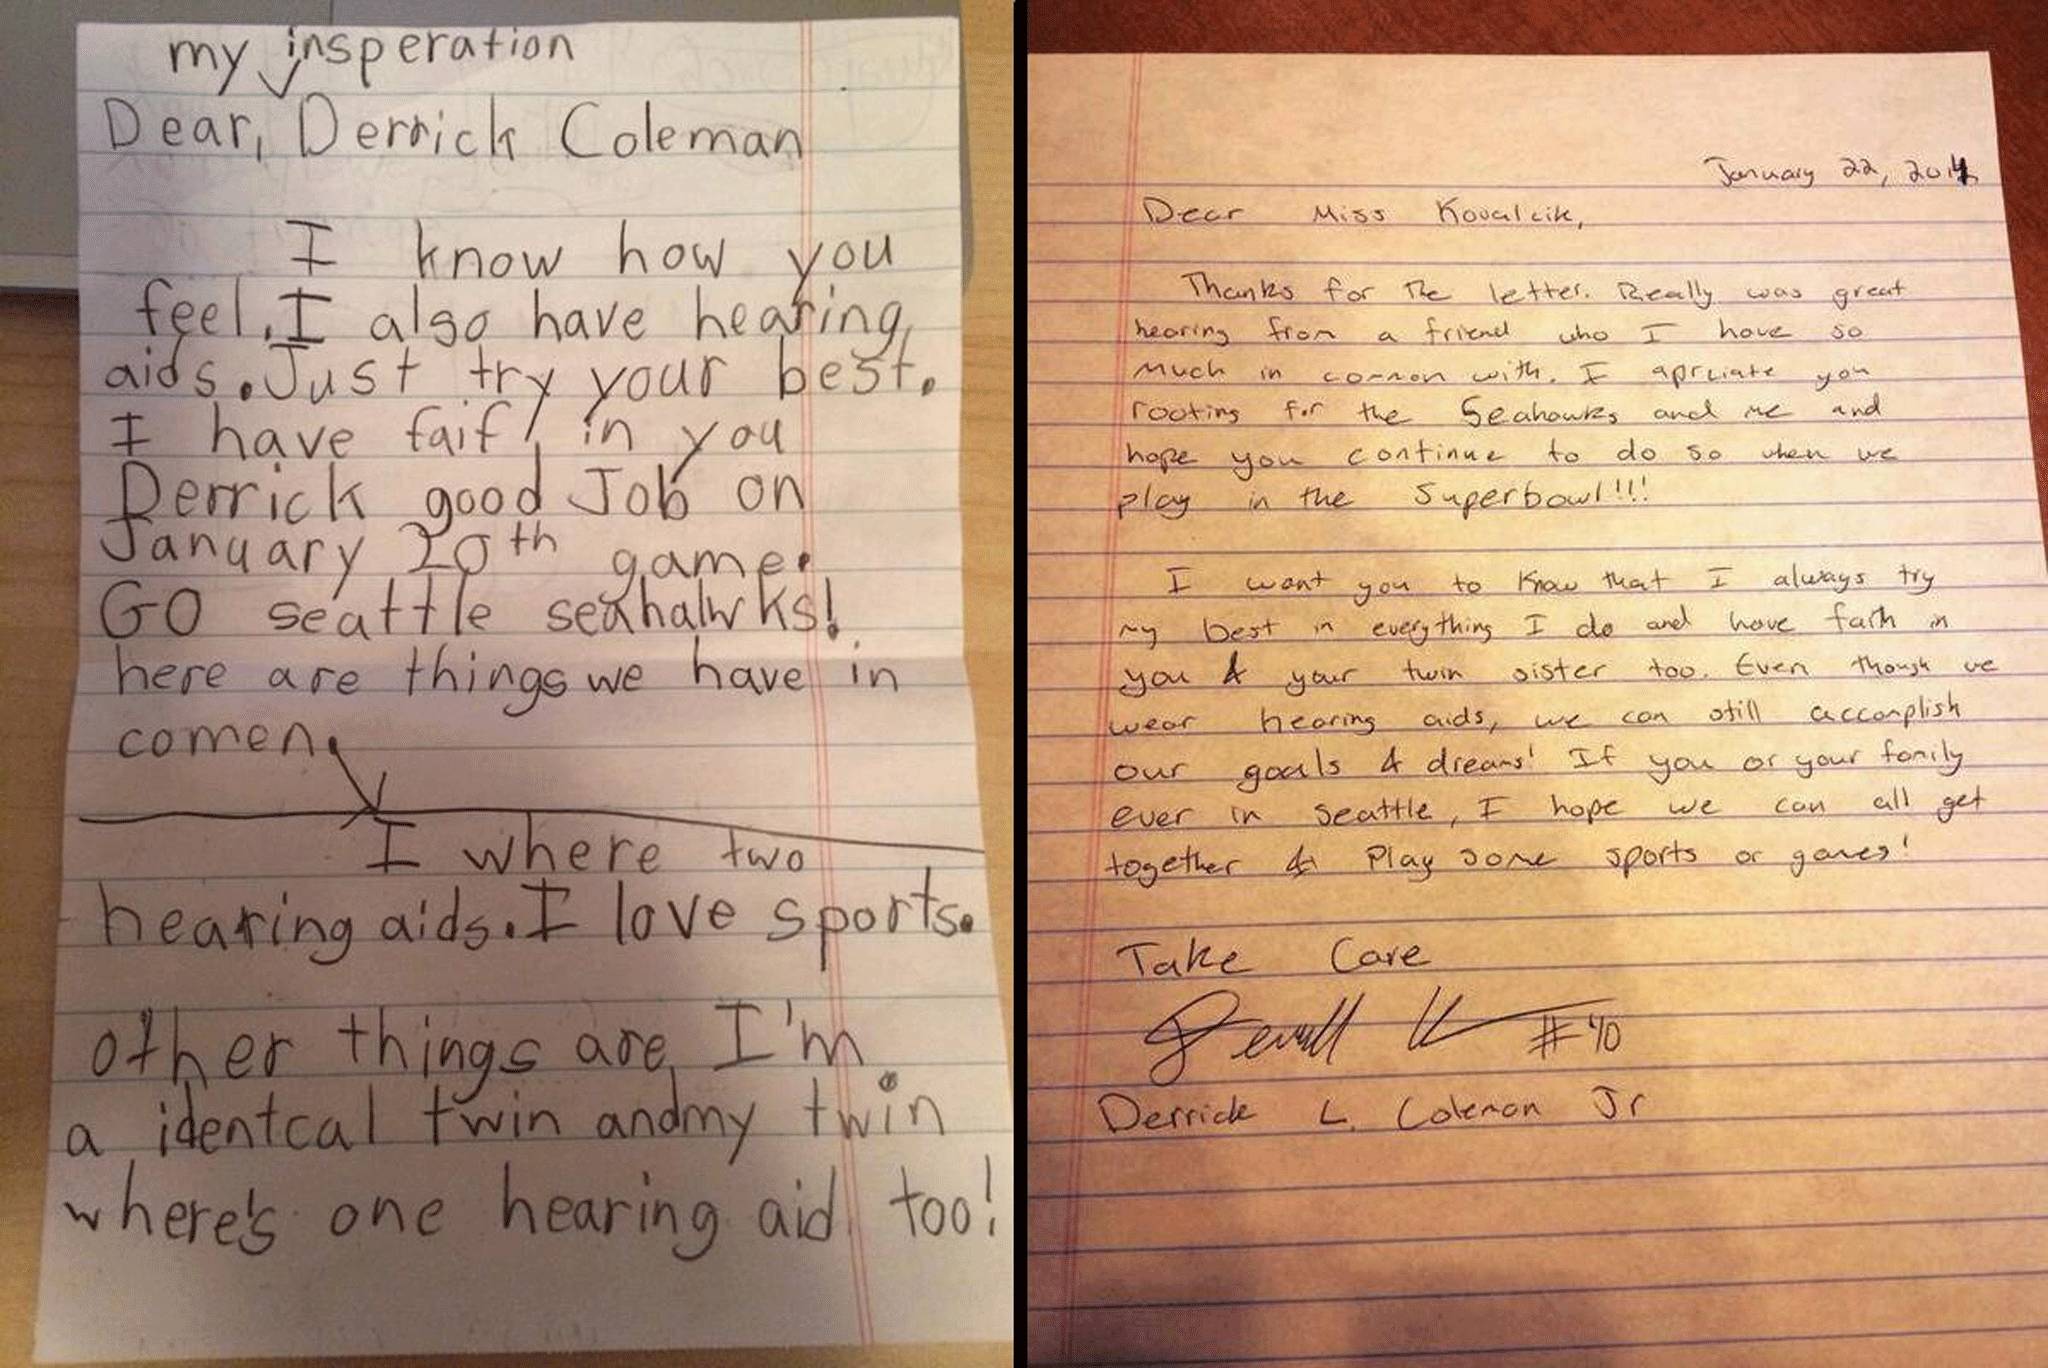 my insperation
Dear, Derrick Coleman
I know how you
feel. I also have hearing
aids. Just try your best.
I have faif in you
Derrick good Job on
January 20th game.
GO seattle seahalwks!
here are things we have in
comen.
I where two
hearing aids. I love sports.
other things are I'm
a identcal twin and my twin
where's one hearing aid too!
January 22, 2014
Dear Miss Kovalcik,
Thanks for the letter. Really was great
hearing from a friend who I have so
much in common with. I aprciate you
rooting for the Seahawks and me and
hope you continue to do so when we
play in the Superbowl!!!
I want you to know that I always try
my best in everything I do and have faith in
you & your twin sister too. Even though we
wear hearing aids, we can still accomplish
our goals & dreams! If you or your family
ever in seattle, I hope we can all get
together & play some sports or games!
Take Care
#40
Derrick L. Coleman Jr